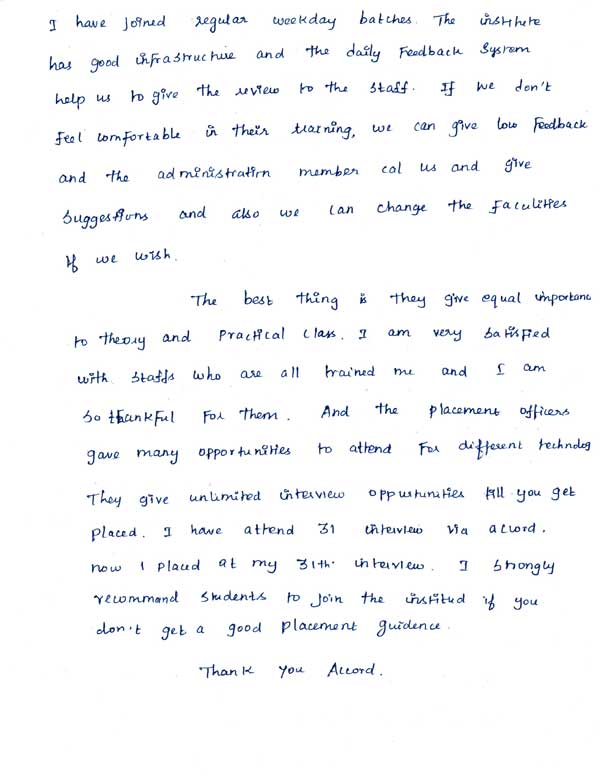 I have joined regular weekday batches. The institute
has good infrastructure and the daily Feedback System
help us to give the review to the staff. If we don't
feel comfortable in their training, we can give low feedback
and the administration member cal us and give
suggestions and also we can change the faculities
if we wish.
The best thing is they give equal importanc
to theory and Practical class. I am very satisfied
with staffs who are all trained me and I am
so thankful for them. And the placement officers
gave many opportunities to attend for different technolog
They give unlimited interview oppurtunities till you get
placed. I have attend 31 interview via accord.
now I placed at my 31th. interview. I strongly
recommand students to join the institud if you
don't get a good placement guidence.
Thank you Accord.